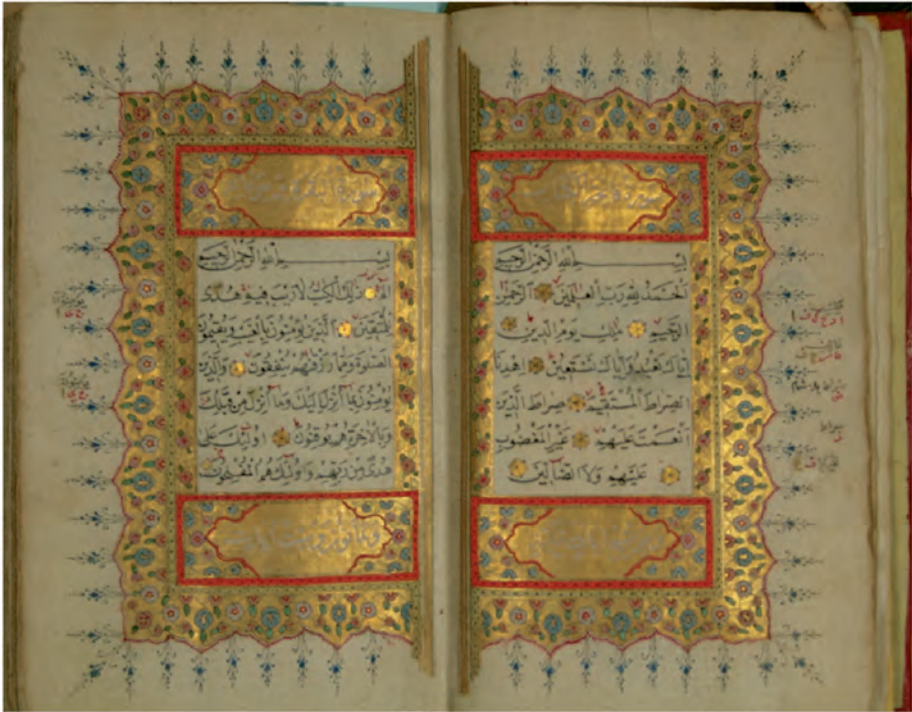 سورة فاتحة الكتاب
بِسْمِ اللهِ الرَّحْمٰنِ الرَّحِيمِ
اَلْحَمْدُ لِلّٰهِ رَبِّ الْعٰلَمِينَ اَلرَّحْمٰنِ
الرَّحِيمِ مٰلِكِ يَوْمِ الدِّينِ
اِيَّاكَ نَعْبُدُ وَاِيَّاكَ نَسْتَعِينُ اِهْدِنَا
الصِّرَاطَ الْمُسْتَقِيمَ صِرَاطَ الَّذِينَ
اَنْعَمْتَ عَلَيْهِمْ غَيْرِ الْمَغْضُوبِ
عَلَيْهِمْ وَلَا الضَّالِّينَ
بِسْمِ اللهِ الرَّحْمٰنِ الرَّحِيمِ
الٓمٓ ذٰلِكَ الْكِتٰبُ لَا رَيْبَ فِيهِ هُدًى
لِلْمُتَّقِينَ اَلَّذِينَ يُؤْمِنُونَ بِالْغَيْبِ وَيُقِيمُونَ
الصَّلٰوةَ وَمِمَّا رَزَقْنٰهُمْ يُنْفِقُونَ وَالَّذِينَ
يُؤْمِنُونَ بِمَا اُنْزِلَ اِلَيْكَ وَمَا اُنْزِلَ مِنْ قَبْلِكَ
وَبِالْاٰخِرَةِ هُمْ يُوقِنُونَ اُولٰئِكَ عَلٰى
هُدًى مِنْ رَبِّهِمْ وَاُولٰئِكَ هُمُ الْمُفْلِحُونَ